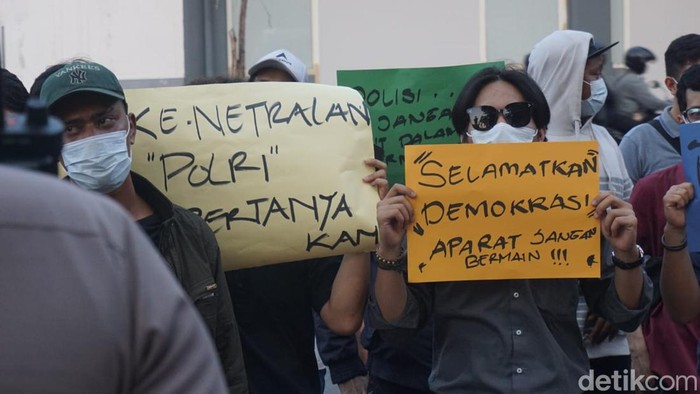 YANKEES
NY
KE.NETRALAN
"POLRI"
KAM
POLISI...
JANGAN
"SELAMATKAN"
"DEMOKRASI
APARAT JANGAN
BERMAIN !!!
detikcom